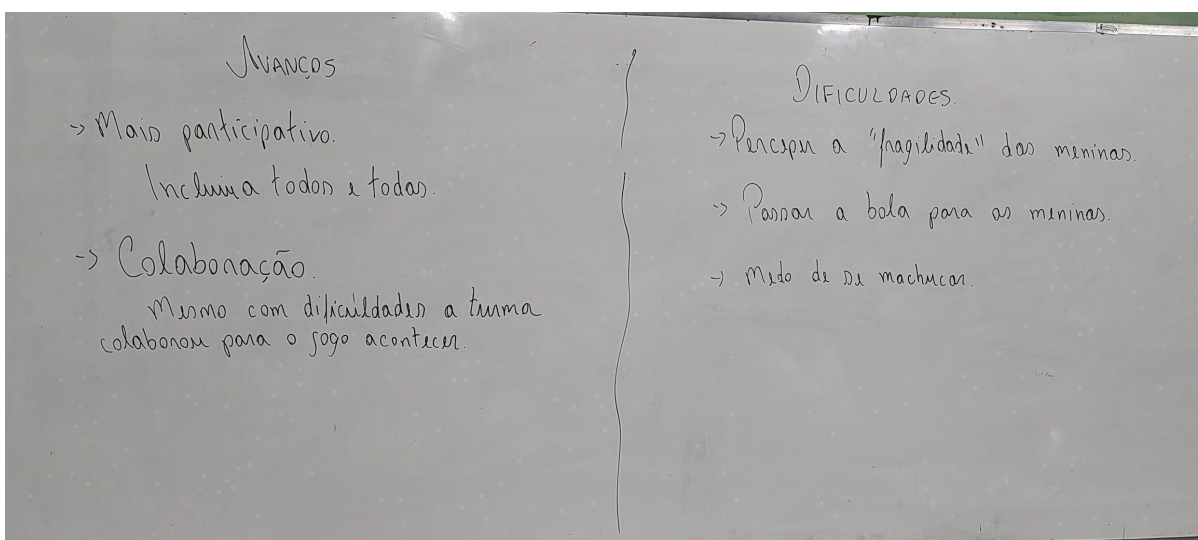 AVANÇOS
→ Mais participativo.
Incluiu a todos e todas.
→ Colaboração.
Mesmo com dificuldades a turma
colaborou para o jogo acontecer.
DIFICULDADES.
→ Perceper a "fragilidade" das meninas.
→ Passar a bola para as meninas.
→ Medo de se machucar.